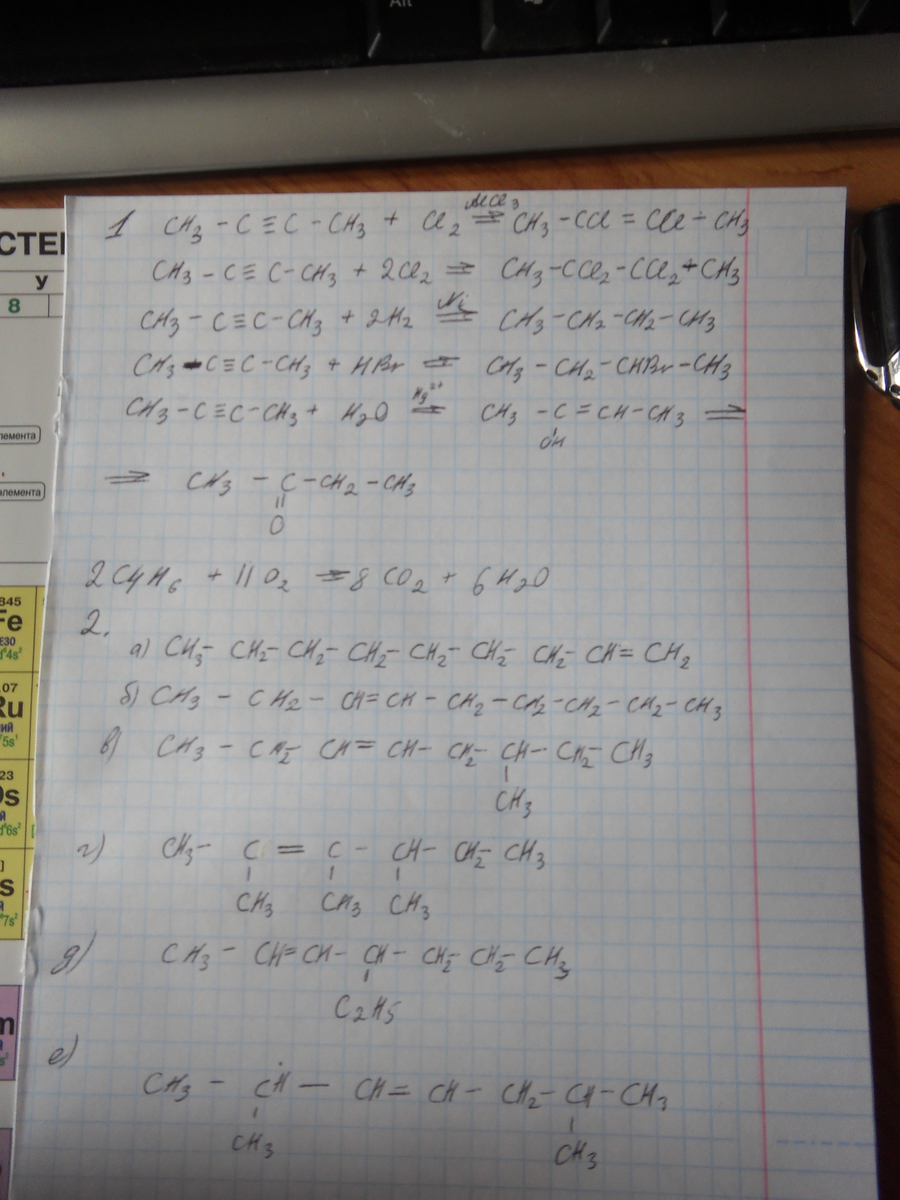 Alt
СТЕМ
У
8
элемента
элемента
845
Fe
ЕЗО
d⁶4s²
.07
Ru
ний
⁷5s¹
23
Os
d⁶6s²
s
⁷7s²
m
1 CH₃ – C ≡ C – CH₃ + Cl₂ ⇌ AlCl₃ CH₃ – CCl = CCl – CH₃
CH₃ – C ≡ C – CH₃ + 2Cl₂ ⇌ CH₃ – CCl₂ – CCl₂ + CH₃
CH₃ – C ≡ C – CH₃ + 2H₂ ⇌ Ni CH₃ – CH₂ – CH₂ – CH₃
CH₃ – C ≡ C – CH₃ + HBr ⇌ CH₃ – CH₂ – CHBr – CH₃
CH₃ – C ≡ C – CH₃ + H₂O ⇌ Hg²⁺ CH₃ – C = CH – CH₃ ⇌
OH
⇌ CH₃ – C – CH₂ – CH₃
||
O
2C4H₆ + 11O₂ ⇌ 8CO₂ + 6H₂O
2.
а) CH₃ – CH₂ – CH₂ – CH₂ – CH₂ – CH₂ – CH₂ – CH = CH₂
б) CH₃ – CH₂ – CH = CH – CH₂ – CH₂ – CH₂ – CH₂ – CH₃
в) CH₃ – CH₂ – CH = CH – CH₂ – CH – CH₂ – CH₃
CH₃
г) CH₃ – C = C – CH – CH₂ – CH₃
CH₃ CH₃ CH₃
д) CH₃ – CH = CH – CH – CH₂ – CH₂ – CH₃
C₂H₅
е)
CH₃ – CH – CH = CH – CH₂ – CH – CH₃
CH₃ CH₃